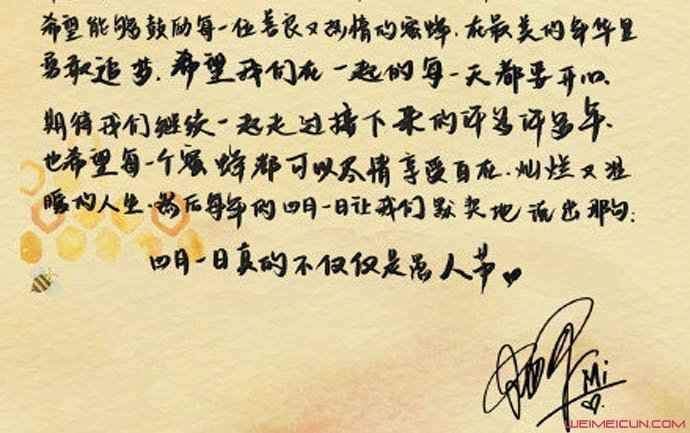 希望能够鼓励每一位善良又热情的蜜蜂,在最美的年华里
勇敢追梦.希望我们在一起的每一天都要开心.
期待我们继续一起走过接下来的许多许多年.
也希望每一个蜜蜂都可以尽情享受自在.灿烂又温
暖的人生.然后每年的四月一日让我们默契地说出那句:
四月一日真的不仅仅是愚人节♥
Mi
WEIMEICUN.COM